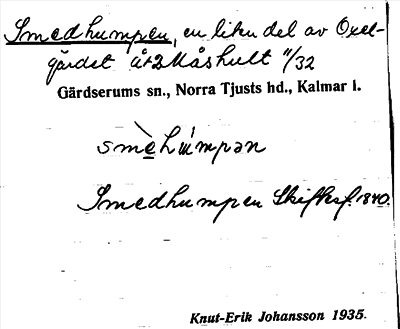 Smedhumpen, en liten del av Oxel-
gärdet åt 2 Måshult 11/32
Gärdserums sn., Norra Tjusts hd., Kalmar l.
smèhu̇́mpən
Smedhumpen Skifteskf. 1840.
Knut-Erik Johansson 1935.